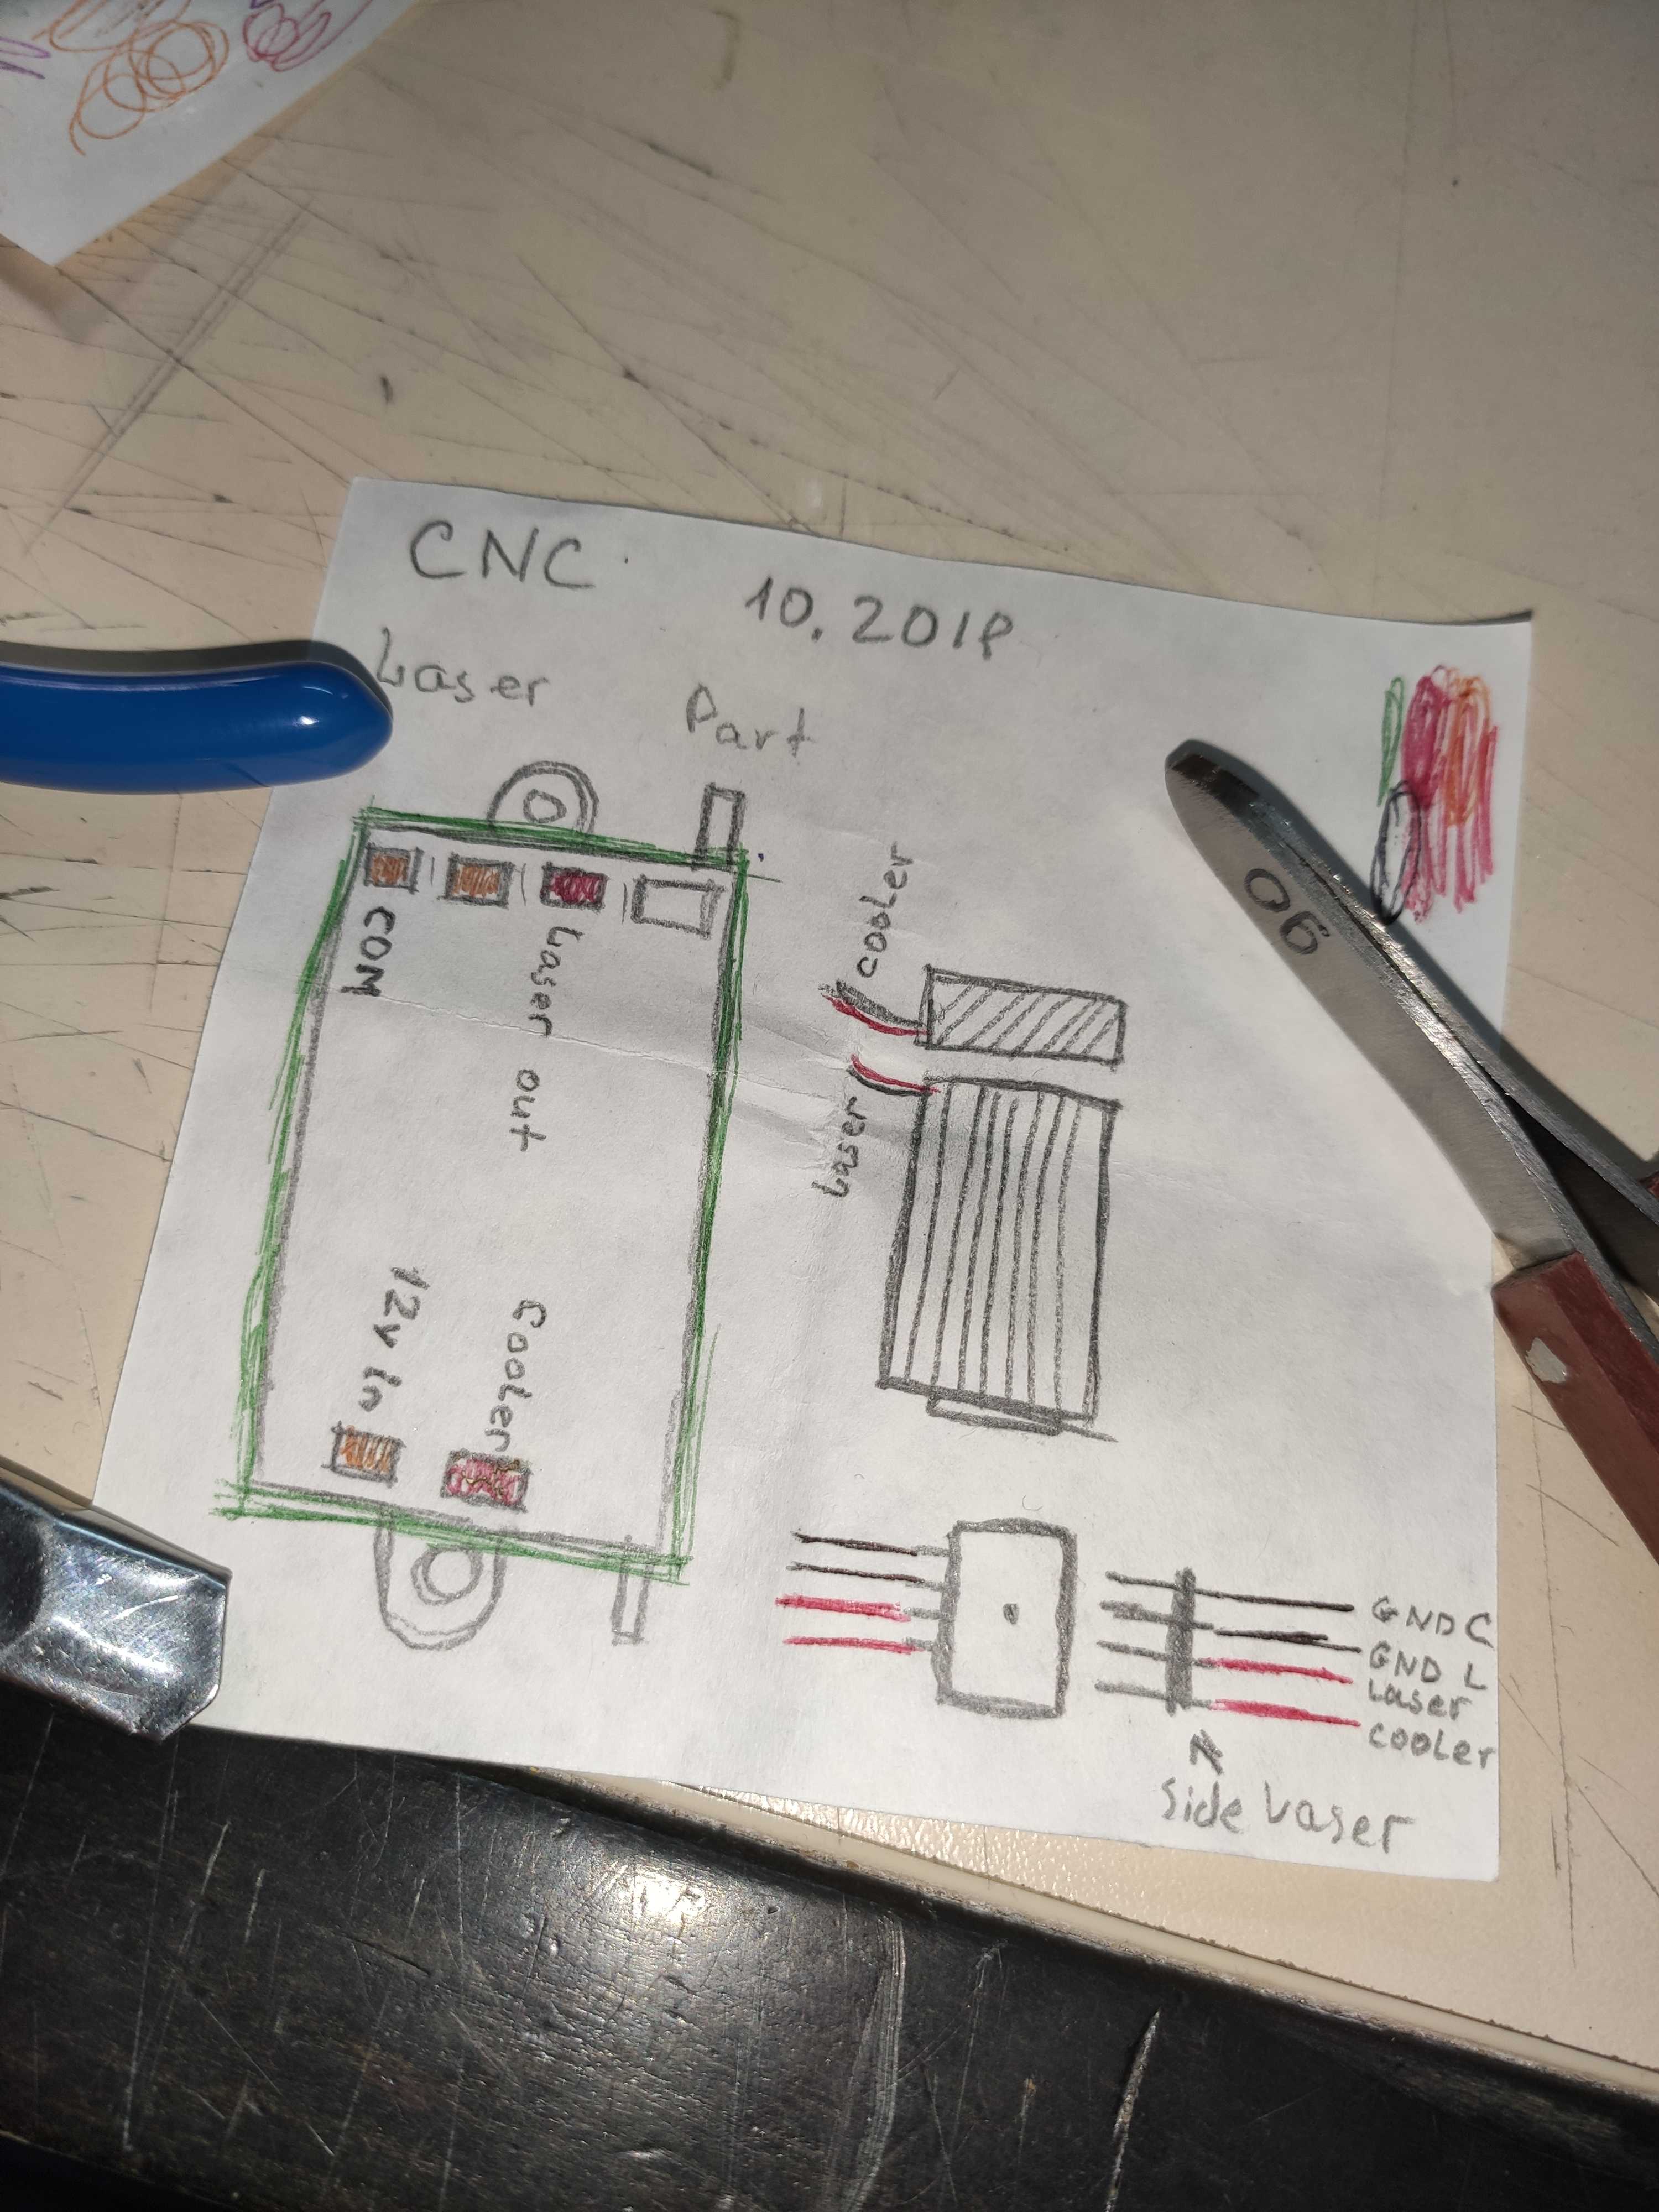 CNC
10.2018
Laser
Part
COM
Laser out
12v in
Cooler
cooler
Laser
GND C
GND L
Laser
cooler
Side Laser
06